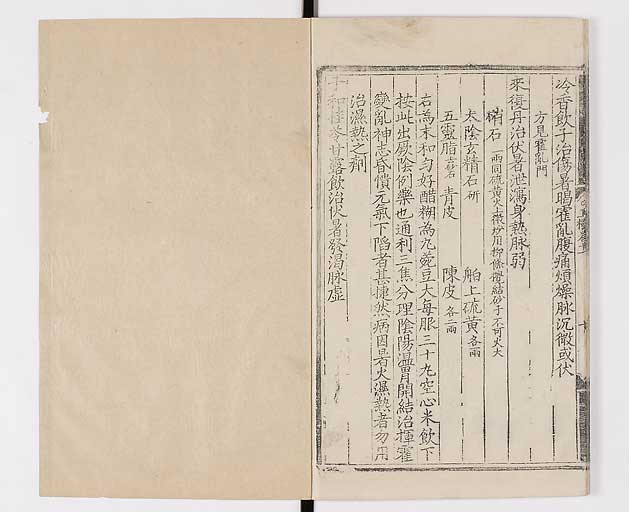 冷香飲子治傷暑暍霍亂腹痛煩燥脉沉微或伏
方見霍亂門
來復丹治伏暑泄瀉身熱脉弱
硝石一兩同硫黃火上微炒用柳條攪結砂子不可火大
太陰玄精石研 舶上硫黃各一兩
五靈脂去砂石 青皮 陳皮各二兩
右為末和勻好醋糊為丸菉豆大每服三十丸空心米飲下
按此出厥陰例藥也通利三焦分理陰陽溫胃開結治揮霍
變亂神志昏憒元氣下陷者甚捷然病因暑火濕熱者勿用
治濕熱之劑
子和桂苓甘露飲治伏暑發渴脉虛